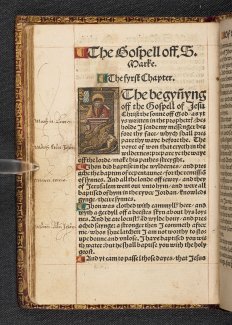 The Gospell off S.
Marke.
The fyrst Chapter.
The begynyng
off the Gospell of Jesu
Christ the sonne off God as yt
ys written in the prophets: be
holde I sende my messenger be
fore thy face whych shall pre
pare thy waye before the. The
voyce of won that cryeth in the
wildernes: prepare ye the waye
off the lorde make his pathes streyght.
Jhon did baptise in the wyldernes and prea
che the baptism of repentaunce for the remissiõ
of synnes. And all the londe off iewry and they
of Jerusalem went out vnto hym and were all
baptysed of hym in the ryver Jordan knowled
gynge theire synnes.
Jhon was clothed with cammylls heer and
with a gerdyll off a beestes skyn about hys loy
nes. And he ate locusts and wylde hony and prea
ched sayinge: a stronger then I commeth after
me whos shue latchet I am not worthy to sto
upe doune and vnlose. I have baptised you with
water: but he shall baptise you with the holy
goost.
And yt cam to passe i those dayes that Jesus